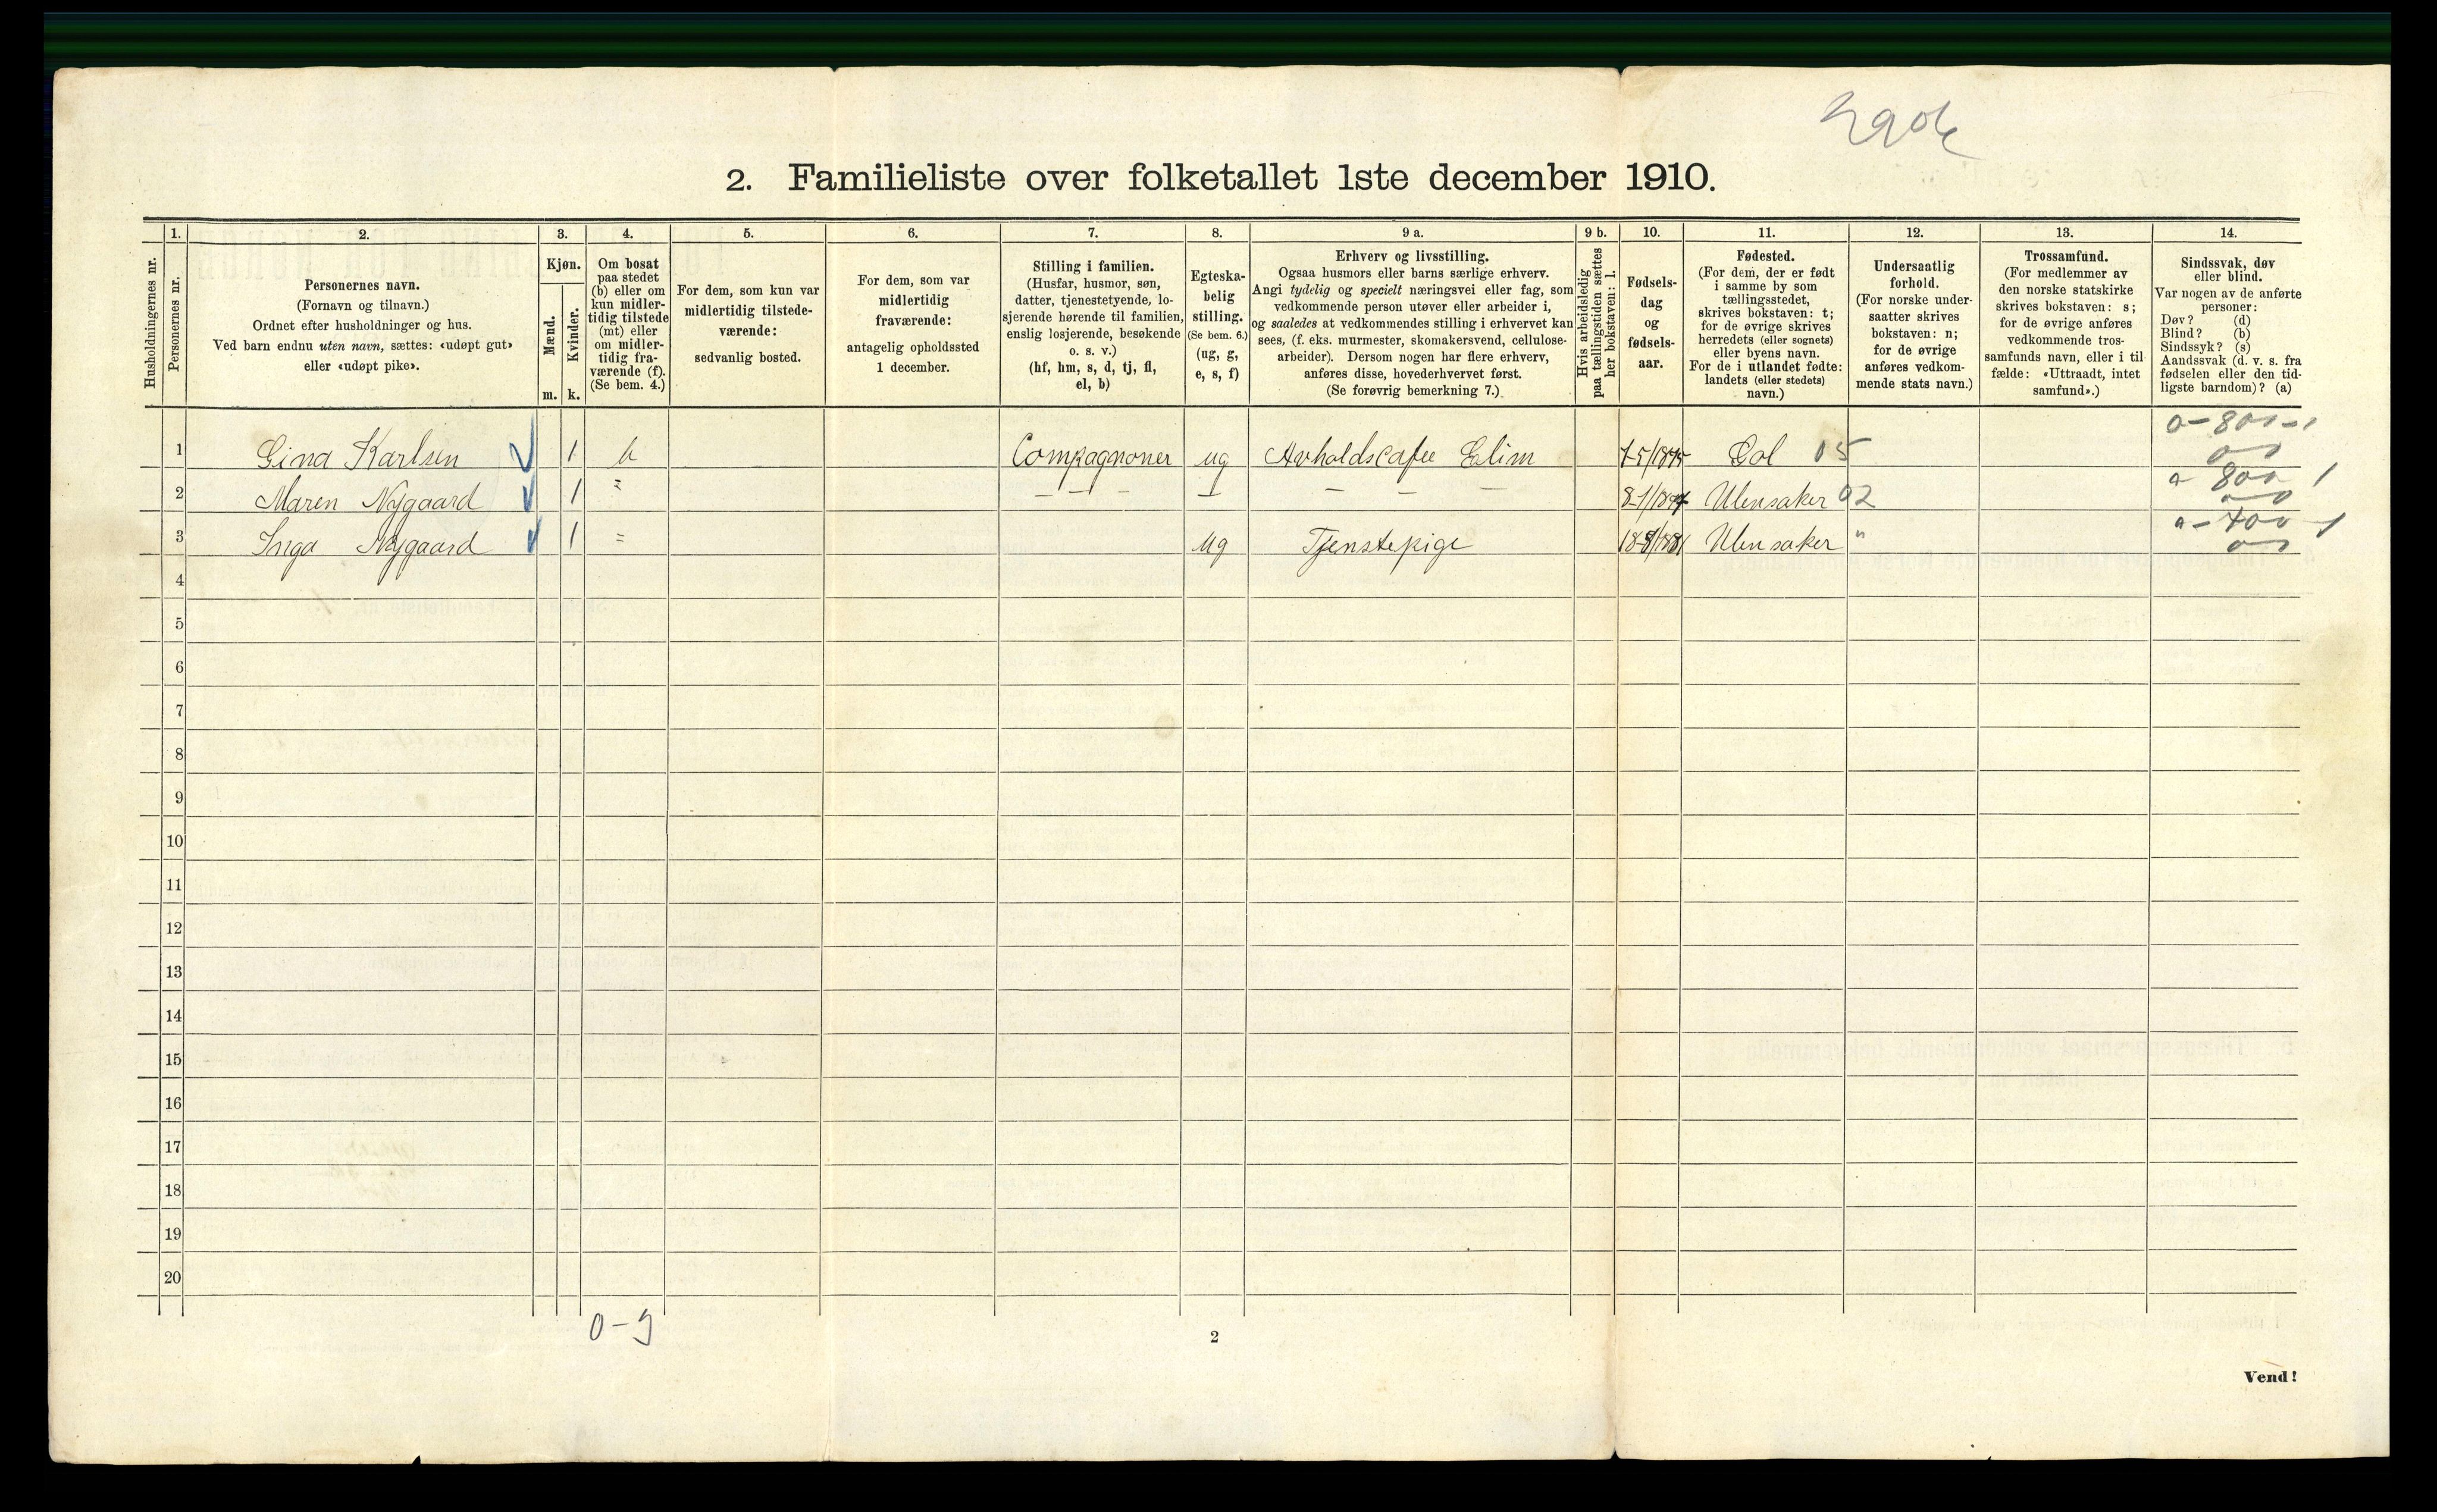 2. Familieliste over folketallet 1ste december 1910.
Husholdningernes nr.
1. Personernes nr.
2. Personernes navn.
(Fornavn og tilnavn.)
Ordnet efter husholdninger og hus.
Ved barn endnu uten navn, sættes: «udøpt gut»
eller «udøpt pike».
3. Kjøn.
Mænd. m.
Kvinder. k.
4. Om bosat
paa stedet
(b) eller om
kun midler-
tidig tilstede
(mt) eller
om midler-
tidig fra-
værende (f).
(Se bem. 4.)
5. For dem, som kun var
midlertidig tilstede-
værende:
sedvanlig bosted.
6. For dem, som var
midlertidig
fraværende:
antagelig opholdssted
1 december.
7. Stilling i familien.
(Husfar, husmor, søn,
datter, tjenestetyende, lo-
sjerende hørende til familien,
enslig losjerende, besøkende
o. s. v.)
(hf, hm, s, d, tj, fl,
el, b)
8. Egteska-
belig
stilling.
(Se bem. 6.)
(ug, g,
e, s, f)
9 a. Erhverv og livsstilling.
Ogsaa husmors eller barns særlige erhverv.
Angi tydelig og specielt næringsvei eller fag, som
vedkommende person utøver eller arbeider i,
og saaledes at vedkommendes stilling i erhvervet kan
sees, (f. eks. murmester, skomakersvend, cellulose-
arbeider). Dersom nogen har flere erhverv,
anføres disse, hovederhvervet først.
(Se forøvrig bemerkning 7.)
9 b. Hvis arbeidsledig
paa tællingstiden sættes
her bokstaven: l.
10. Fødsels-
dag
og
fødsels-
aar.
11. Fødested.
(For dem, der er født
i samme by som
tællingsstedet,
skrives bokstaven: t;
for de øvrige skrives
herredets (eller sognets)
eller byens navn.
For de i utlandet fødte:
landets (eller stedets)
navn.)
12. Undersaatlig
forhold.
(For norske under-
saatter skrives
bokstaven: n;
for de øvrige
anføres vedkom-
mende stats navn.)
13. Trossamfund.
(For medlemmer av
den norske statskirke
skrives bokstaven: s;
for de øvrige anføres
vedkommende tros-
samfunds navn, eller i til-
fælde: «Uttraadt, intet
samfund».)
14. Sindssvak, døv
eller blind.
Var nogen av de anførte
personer:
Døv? (d)
Blind? (b)
Sindssyk? (s)
Aandssvak (d. v. s. fra
fødselen eller den tid-
ligste barndom)? (a)
1 Gina Karlsen 1 b Compagnoner ug Avholdscafee Elim 7-5/1875 Gol 05 0-800-1
2 Maren Nygaard 1 = — — — — — — — Ulensaker 02 0-800 1
3 Inga Nygaard 1 = ug Tjenstepige Ulensaker " 0-400-1
4
5
6
7
8
9
10
11
12
13
14
15
16
17
18
19
20
0-3
2
Vend!